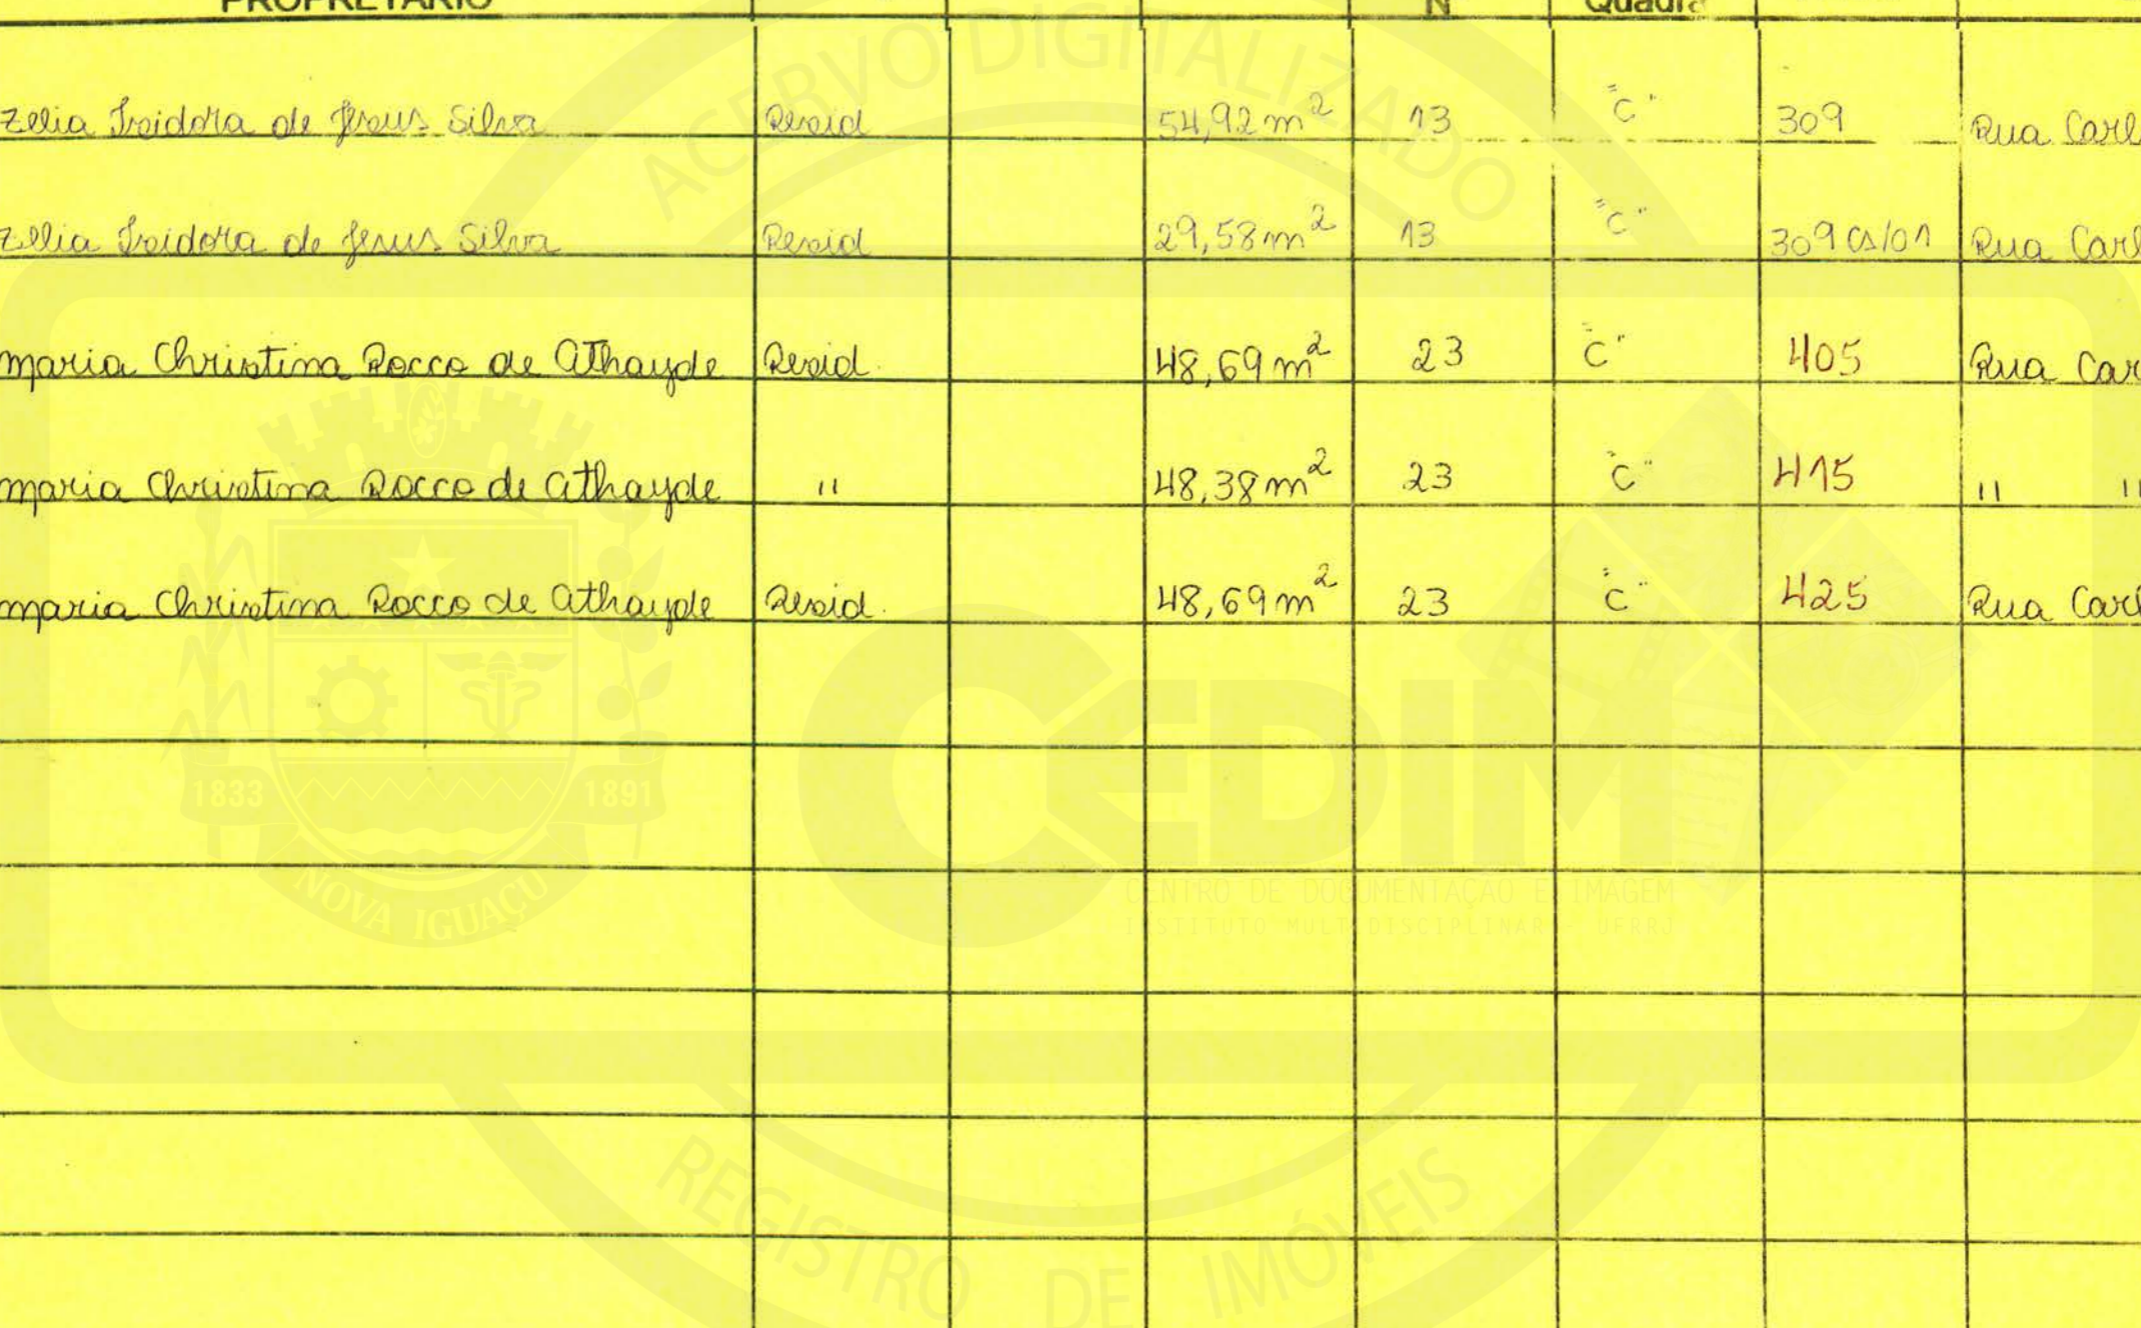 PROPRETÁRIO N Quadra
Zelia Izidora de Jesus Silva Resid 54,92 m² 13 "C" 309 Rua Carl
Zelia Izidora de Jesus Silva Resid 29,58 m² 13 "C" 309 cs/01 Rua Carl
Maria Christina Rocco de Athayde Resid. 48,69 m² 23 "C" 405 Rua Car
Maria Christina Rocco de Athayde " 48,38 m² 23 "C" 415 " "
Maria Christina Rocco de Athayde Resid. 48,69 m² 23 "C" 425 Rua Carl
ACERVO DIGITALIZADO
1833 1891
NOVA IGUAÇU
CEDIM
CENTRO DE DOCUMENTAÇÃO E IMAGEM
INSTITUTO MULTIDISCIPLINAR - UFRRJ
REGISTRO DE IMÓVEIS